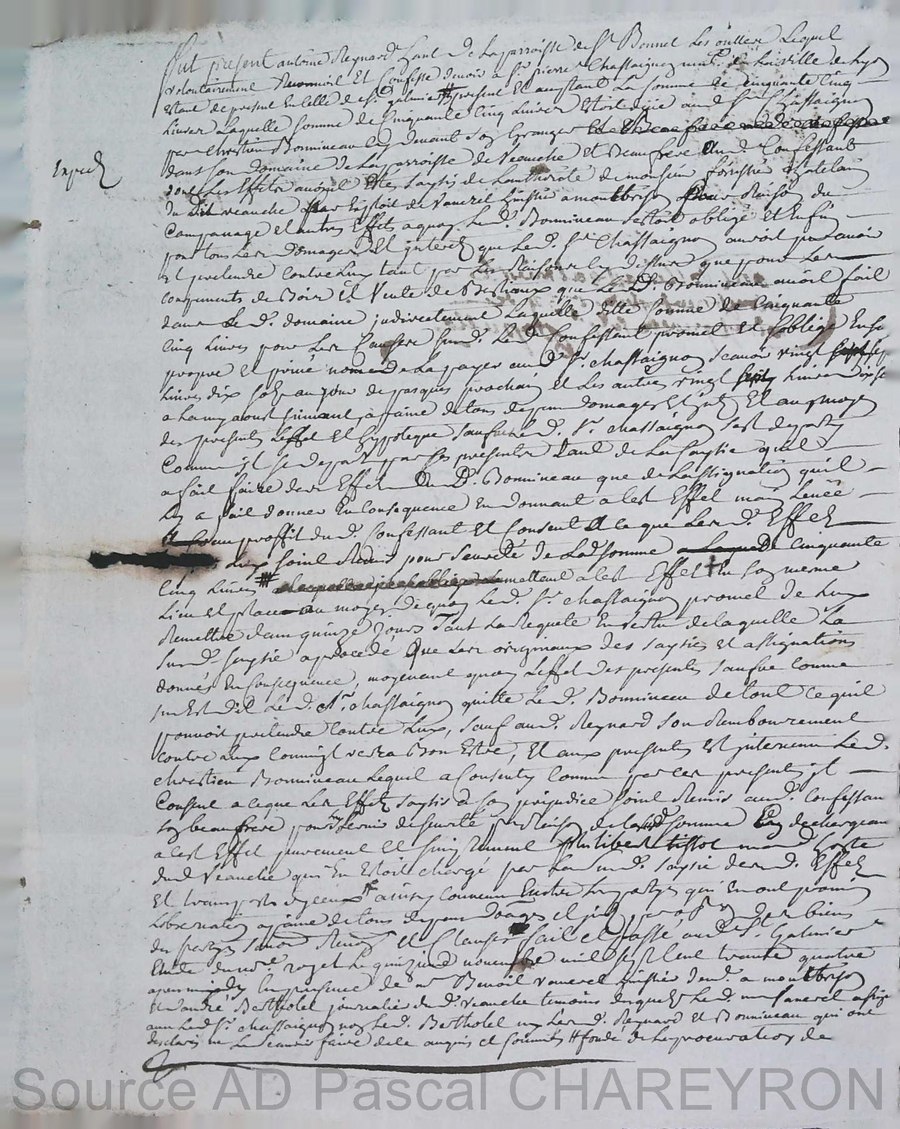 Fut present antoine Reynard hant de La parroisse de St Bonnet Les oulles Lequel
volontairement Reconnoit Et Confesse devoir a Sr pierre Chassaignon mat de La ville de Lyon
Estant de present En Celle de St galmier # present Et aceptant La somme de Cinquante Cinq
Livres Laquelle somme de Cinquante Cinq Livres Et Redigée aud Sr Chassaignon
par Chrestien Bonnineau Cy devant Son Granger
Exped
dans son domaine de La parroisse de veauche Et Beaufrere dud Confessant
dont Les Effets auroit Eté saysis de Lauthorité de monsieur forissier Chatelain
du dit veauche par Exploit de vanerel huissier a montbrison pour Raison du
Campanage et autres Effets a quoy Le d. Bonnineau sestoit obligé Et Enfin
pour tous Les domages Et interets que Led. Sr Chassaignon auroit pu avoir
Et pretendre Contre Luy tant par Les Raisons Cy dessus que pour Les
Coupements de Bois Et Vente de Bestiaux que Le d. Bonnineau avoit fait
dans Le d. domaine judirectement Laquelle ditte somme de Cinquante
Cinq Livres pour Les Causes sur d. Le d. Confessant promet Et soblige En son
propre et privé nom de La payer aud Sr Chassaignon scavoir vingt sept
Livres dix sols au jour de pasques prochain Et Les autres vingt sept Livres dix s
a La my aoust suivant, a paine de tous depens domages Et jnts Et au moyen
des presentes Leffet Et hypoteque sauf aire Led. Sr Chassaignon sest departy
Comme jl se depart par Ses presentes tant de La saysie quil
a fait faire des Effets du d. Bonnineau que de Lassignation quil
Luy a fait donner En Consequence En donnant a Cet Effet main Levée
au proffit du d. Confessant Et Consent a Ce que Les d. Effets
Luy soint Remis pour seureté de Lad somme de Cinquante
Cinq Livres # Le mettent a Cet Effet En son meme
Lieu et place au moyen de quoy Le d. Sr Chassaignon promet de Luy
Remettre dans quinze jours tant La Requete En vertu de laquelle La
sur d. saysie a procedé que Les originaux des saysies et assignations
donnés En Consequence, moyenant quoy Leffet des presentes sauf que Comme
sus Est dit Le d. Sr Chassaignon quitte Le d. Bonnineau de tout Ce quil
pouvoit pretendre Contre Luy, sauf au d. Reynard son Rembourcement
Contre Luy Comme il verra Bon Estre, Et aux presentes Est jntervenu Le d.
Chrestien Bonnineau Lequel a Consenty Comme par Ces presentes jl
Consent a Ce que Les Effets saysis a son prejudice soint Remis aud. Confessant
son beaufrere pour Servir de seureté pr Raison de Lad somme En dechargeant
a Cet Effet purement et simplement philibert tissot mard hoste
dud Veauche qui En Estoit Chargé par La sur d. saysie des d. Effets
Et transports dyceux # ainsy Convenu Entre Les partyes qui En ont promis
Lobservation a paine de tous depens domages et jnts par obon de Leurs biens
du partye soumon Renon Et Clauses fait et passé aud St Galmier
Etude du nore royet Le quinzieme novembre mil sept Cent trante quatre
apres midy En presence de mr Benoit vanerel huissier demt a montbrison
et andré Berthollet journalier du d. veauche temoins Lesquels Led. mr vanerel a signé
avec Led Sr Chassaignon non Le d. Berthollet ny Les d. Reynard Et Bonnineau qui ont
declaré ne Le scavoir faire de Ce anquis et sommés # fondé de La procuration de
Source AD Pascal CHAREYRON